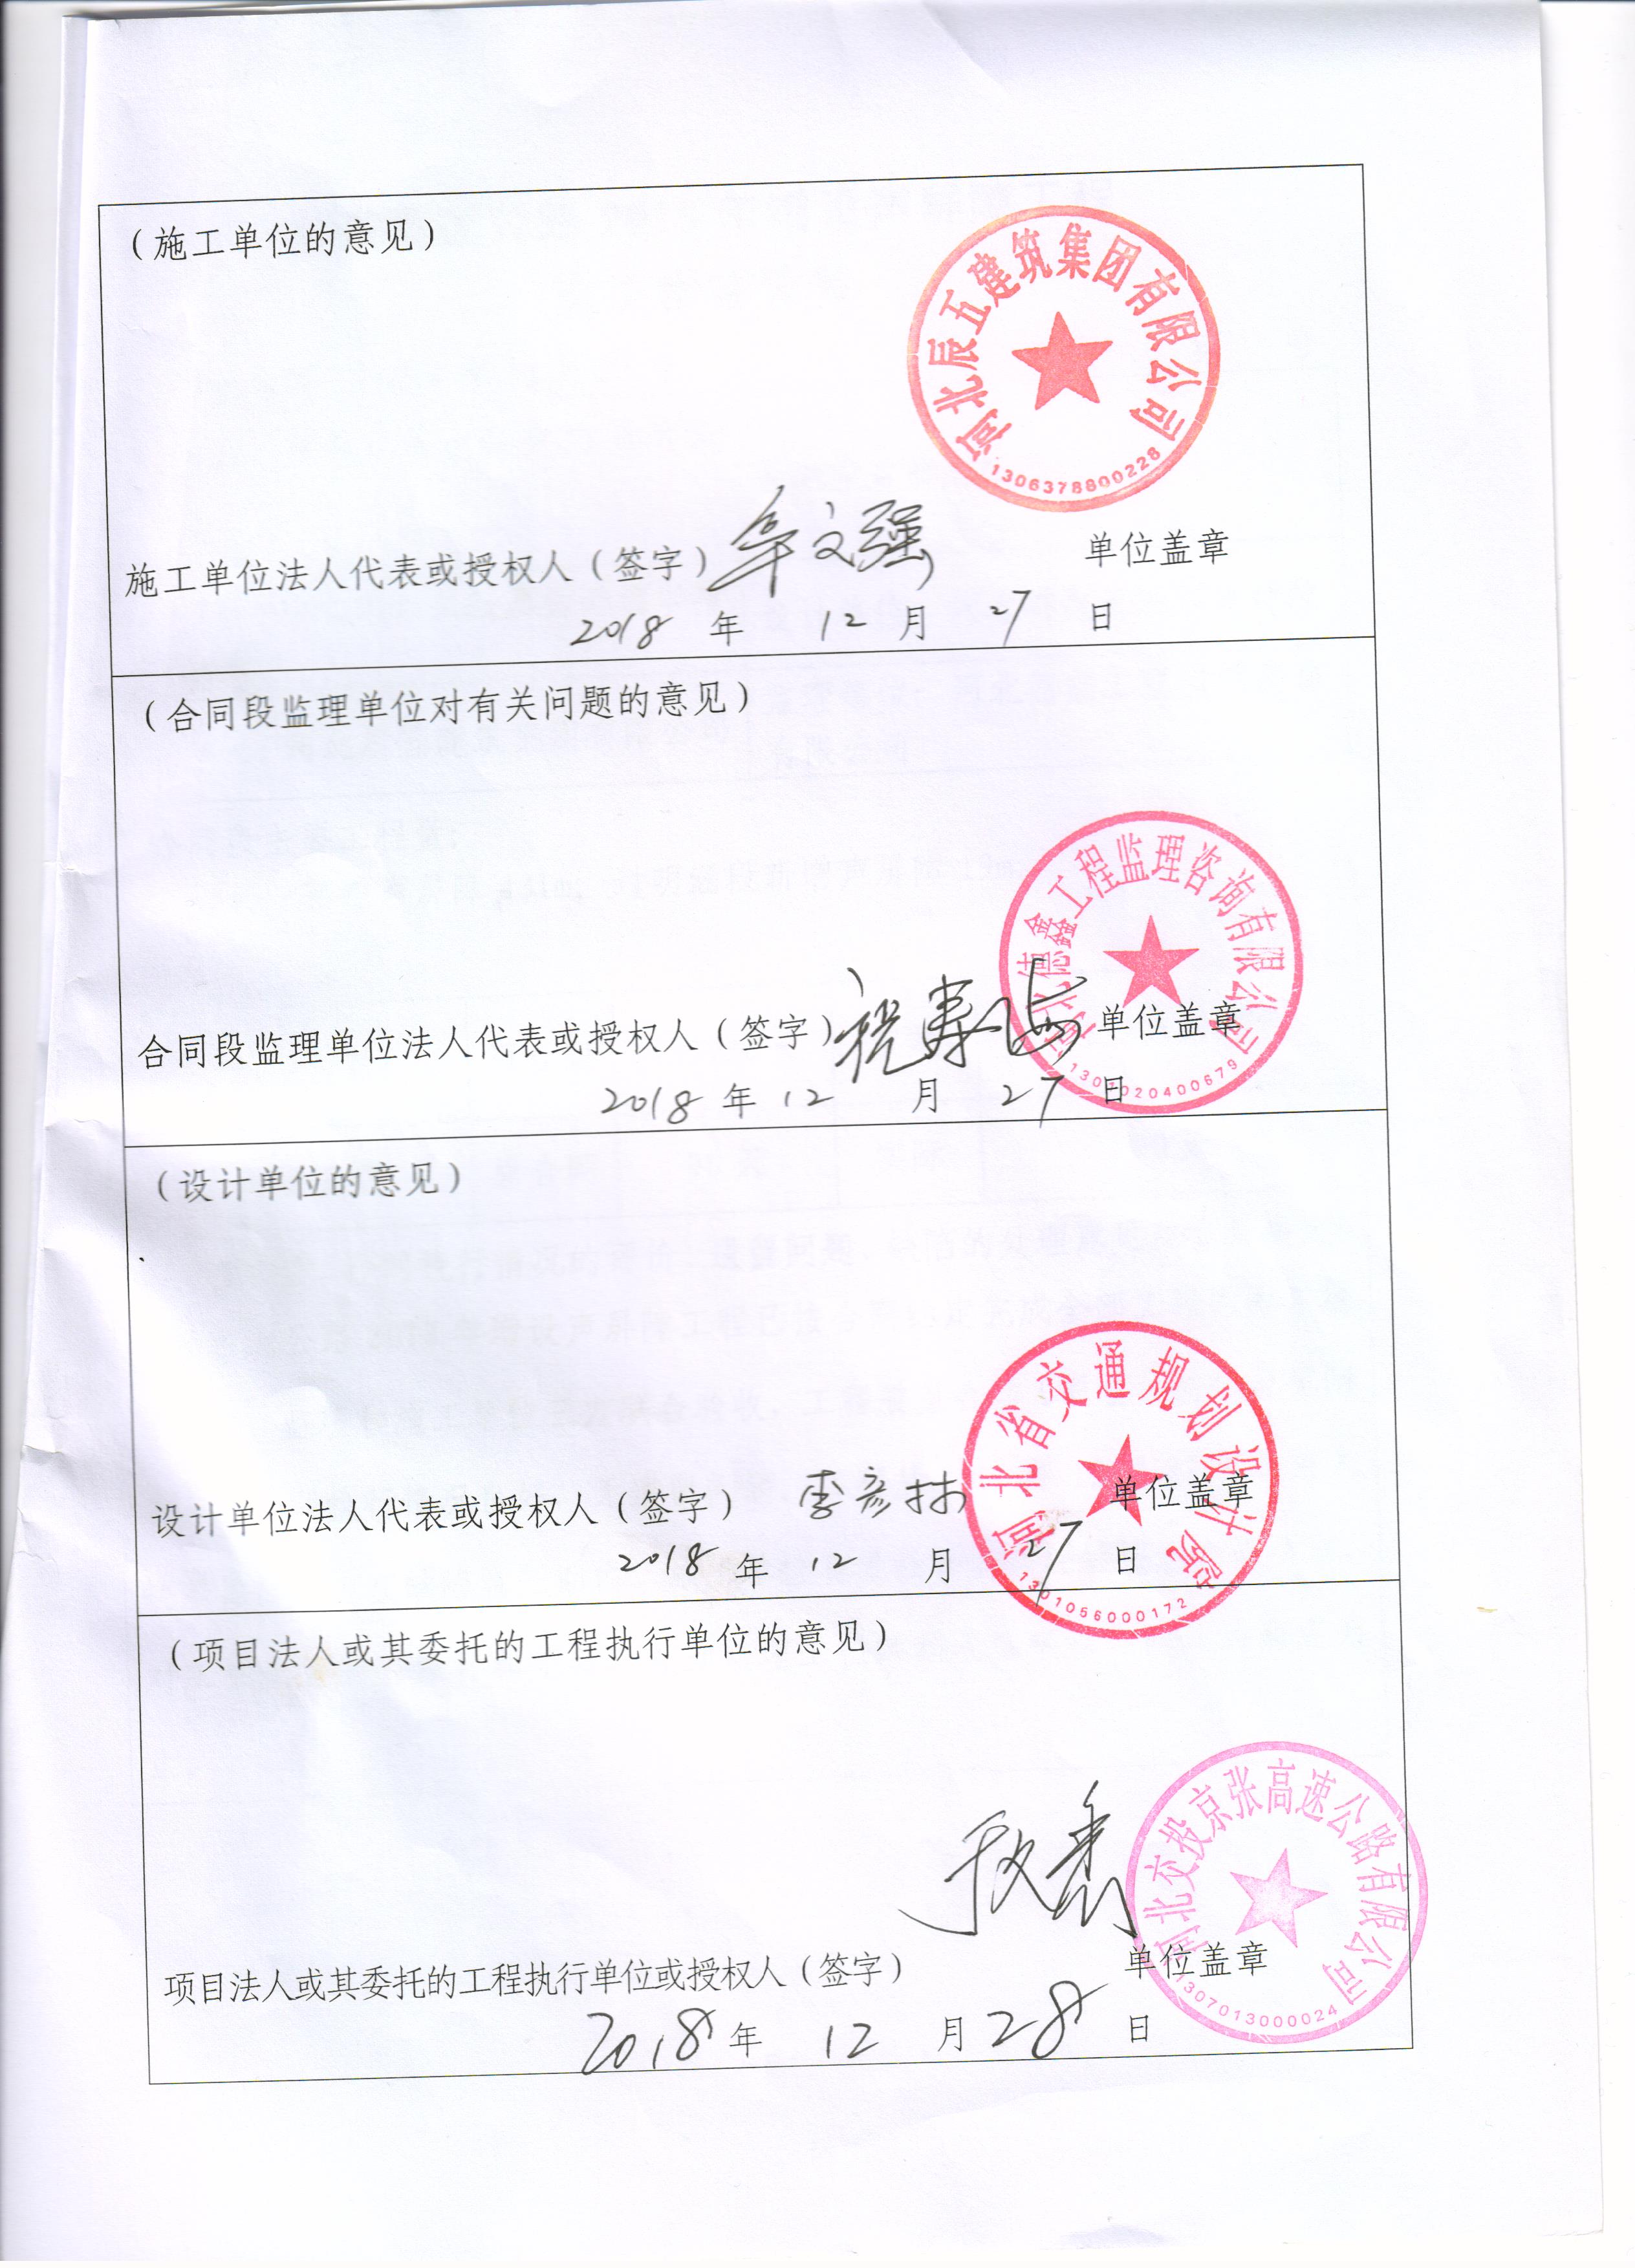 （施工单位的意见）
河北辰五建筑集团有限公司
1306378800228
施工单位法人代表或授权人（签字） 文强 单位盖章
2018 年 12 月 27 日
（合同段监理单位对有关问题的意见）
河北德鑫工程监理咨询有限公司
合同段监理单位法人代表或授权人（签字） 祝寿海 单位盖章
2018 年 12 月 27 日
（设计单位的意见）
河北省交通规划设计院
1301056000172
设计单位法人代表或授权人（签字） 李彦林 单位盖章
2018 年 12 月 27 日
（项目法人或其委托的工程执行单位的意见）
河北交投京张高速公路有限公司
1307013000024
项目法人或其委托的工程执行单位或授权人（签字） 单位盖章
2018 年 12 月 28 日